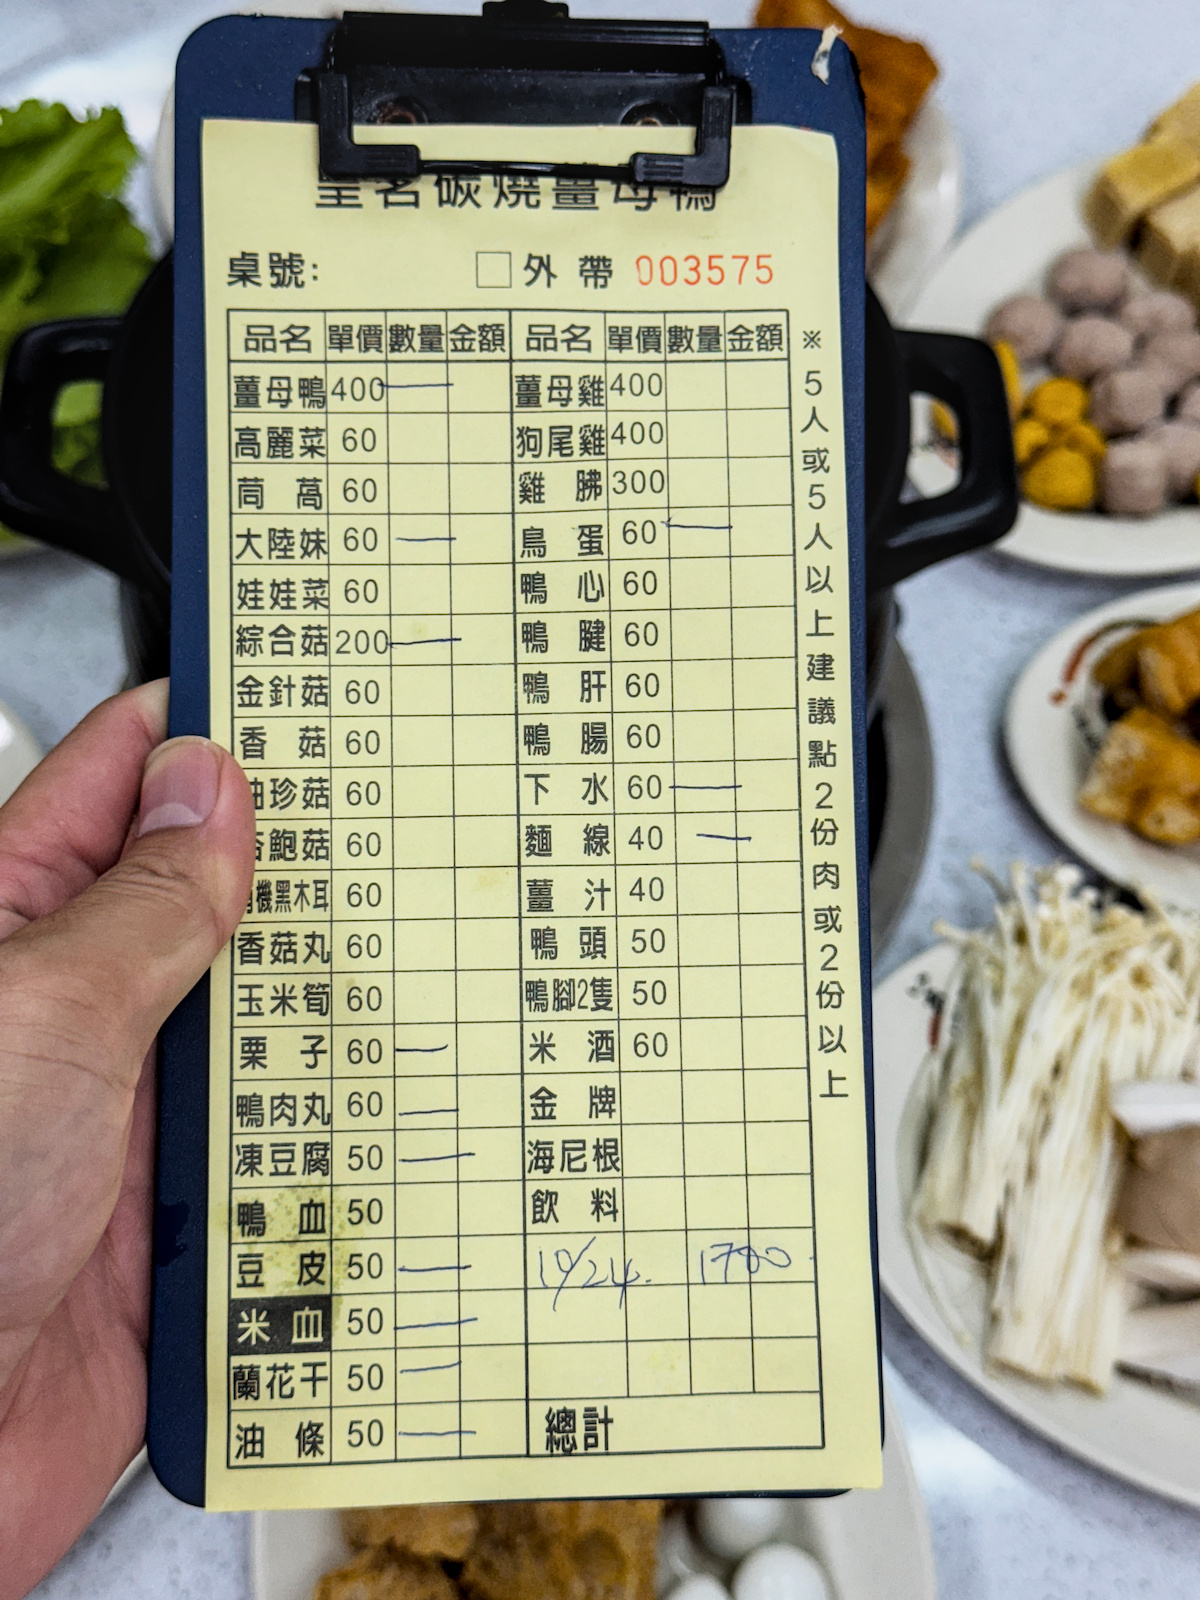 皇名碳燒薑母鴨
桌號: □外帶 003575
品名 單價 數量 金額 品名 單價 數量 金額
薑母鴨 400 一 薑母雞 400
高麗菜 60 狗尾雞 400
茼萵 60 雞腁 300
大陸妹 60 一 鳥蛋 60 一
娃娃菜 60 鴨心 60
綜合菇 200 一 鴨腱 60
金針菇 60 鴨肝 60
香菇 60 鴨腸 60
珍菇 60 下水 60 一
鮑菇 60 麵線 40 一
機黑木耳 60 薑汁 40
香菇丸 60 鴨頭 50
玉米筍 60 鴨腳2隻 50
栗子 60 一 米酒 60
鴨肉丸 60 一 金牌
凍豆腐 50 一 海尼根
鴨血 50 飲料
豆皮 50 一 10/24. 1780.
米血 50 一
蘭花干 50 一
油條 50 一 總計
※5人或5人以上建議點2份肉或2份以上